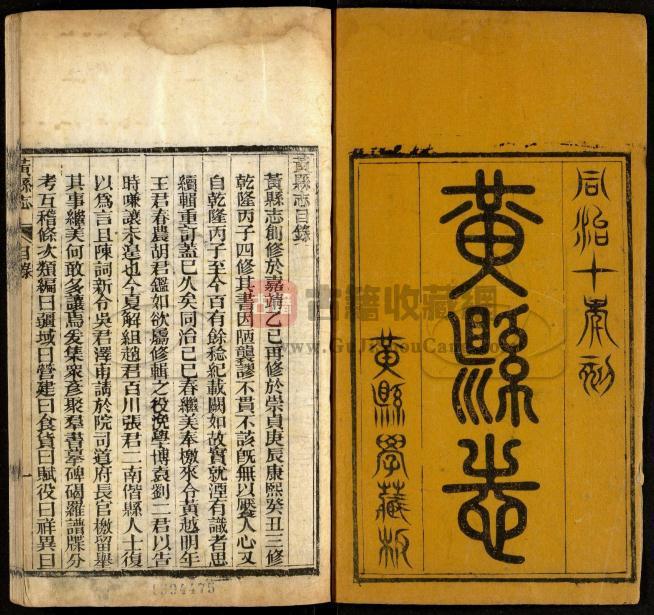 同治十年刻
黃縣志
黃縣學藏板
黃縣志目錄
黃縣志創修於嘉靖乙巳再修於崇貞庚辰康熙癸丑三修
乾隆丙子四修其書因陋襲謬不貫不該旣無以饜人心又
自乾隆丙子至今百有餘稔紀載闕如故實就湮有識者思
續輯重訂蓋已久矣同治己巳春繼美奉檄來令黃越明年
王君春農胡君鑑如欲屬修輯之役浼學博袁劉二君以告
時嗛讓未遑也今夏解組趙君百川張君二南偕縣人士復
以爲言且陳詞新令吳君澤甫請於院司道府長官檄留舉
其事繼美何敢多讓焉爰集衆彥聚羣書摹碑碣羅譜牒分
考互稽條次類編曰疆域曰營建曰食貨曰賦役曰祥異曰
黃縣志
目錄
一
古籍收藏網
www.GuJiShouCang.com
1694475